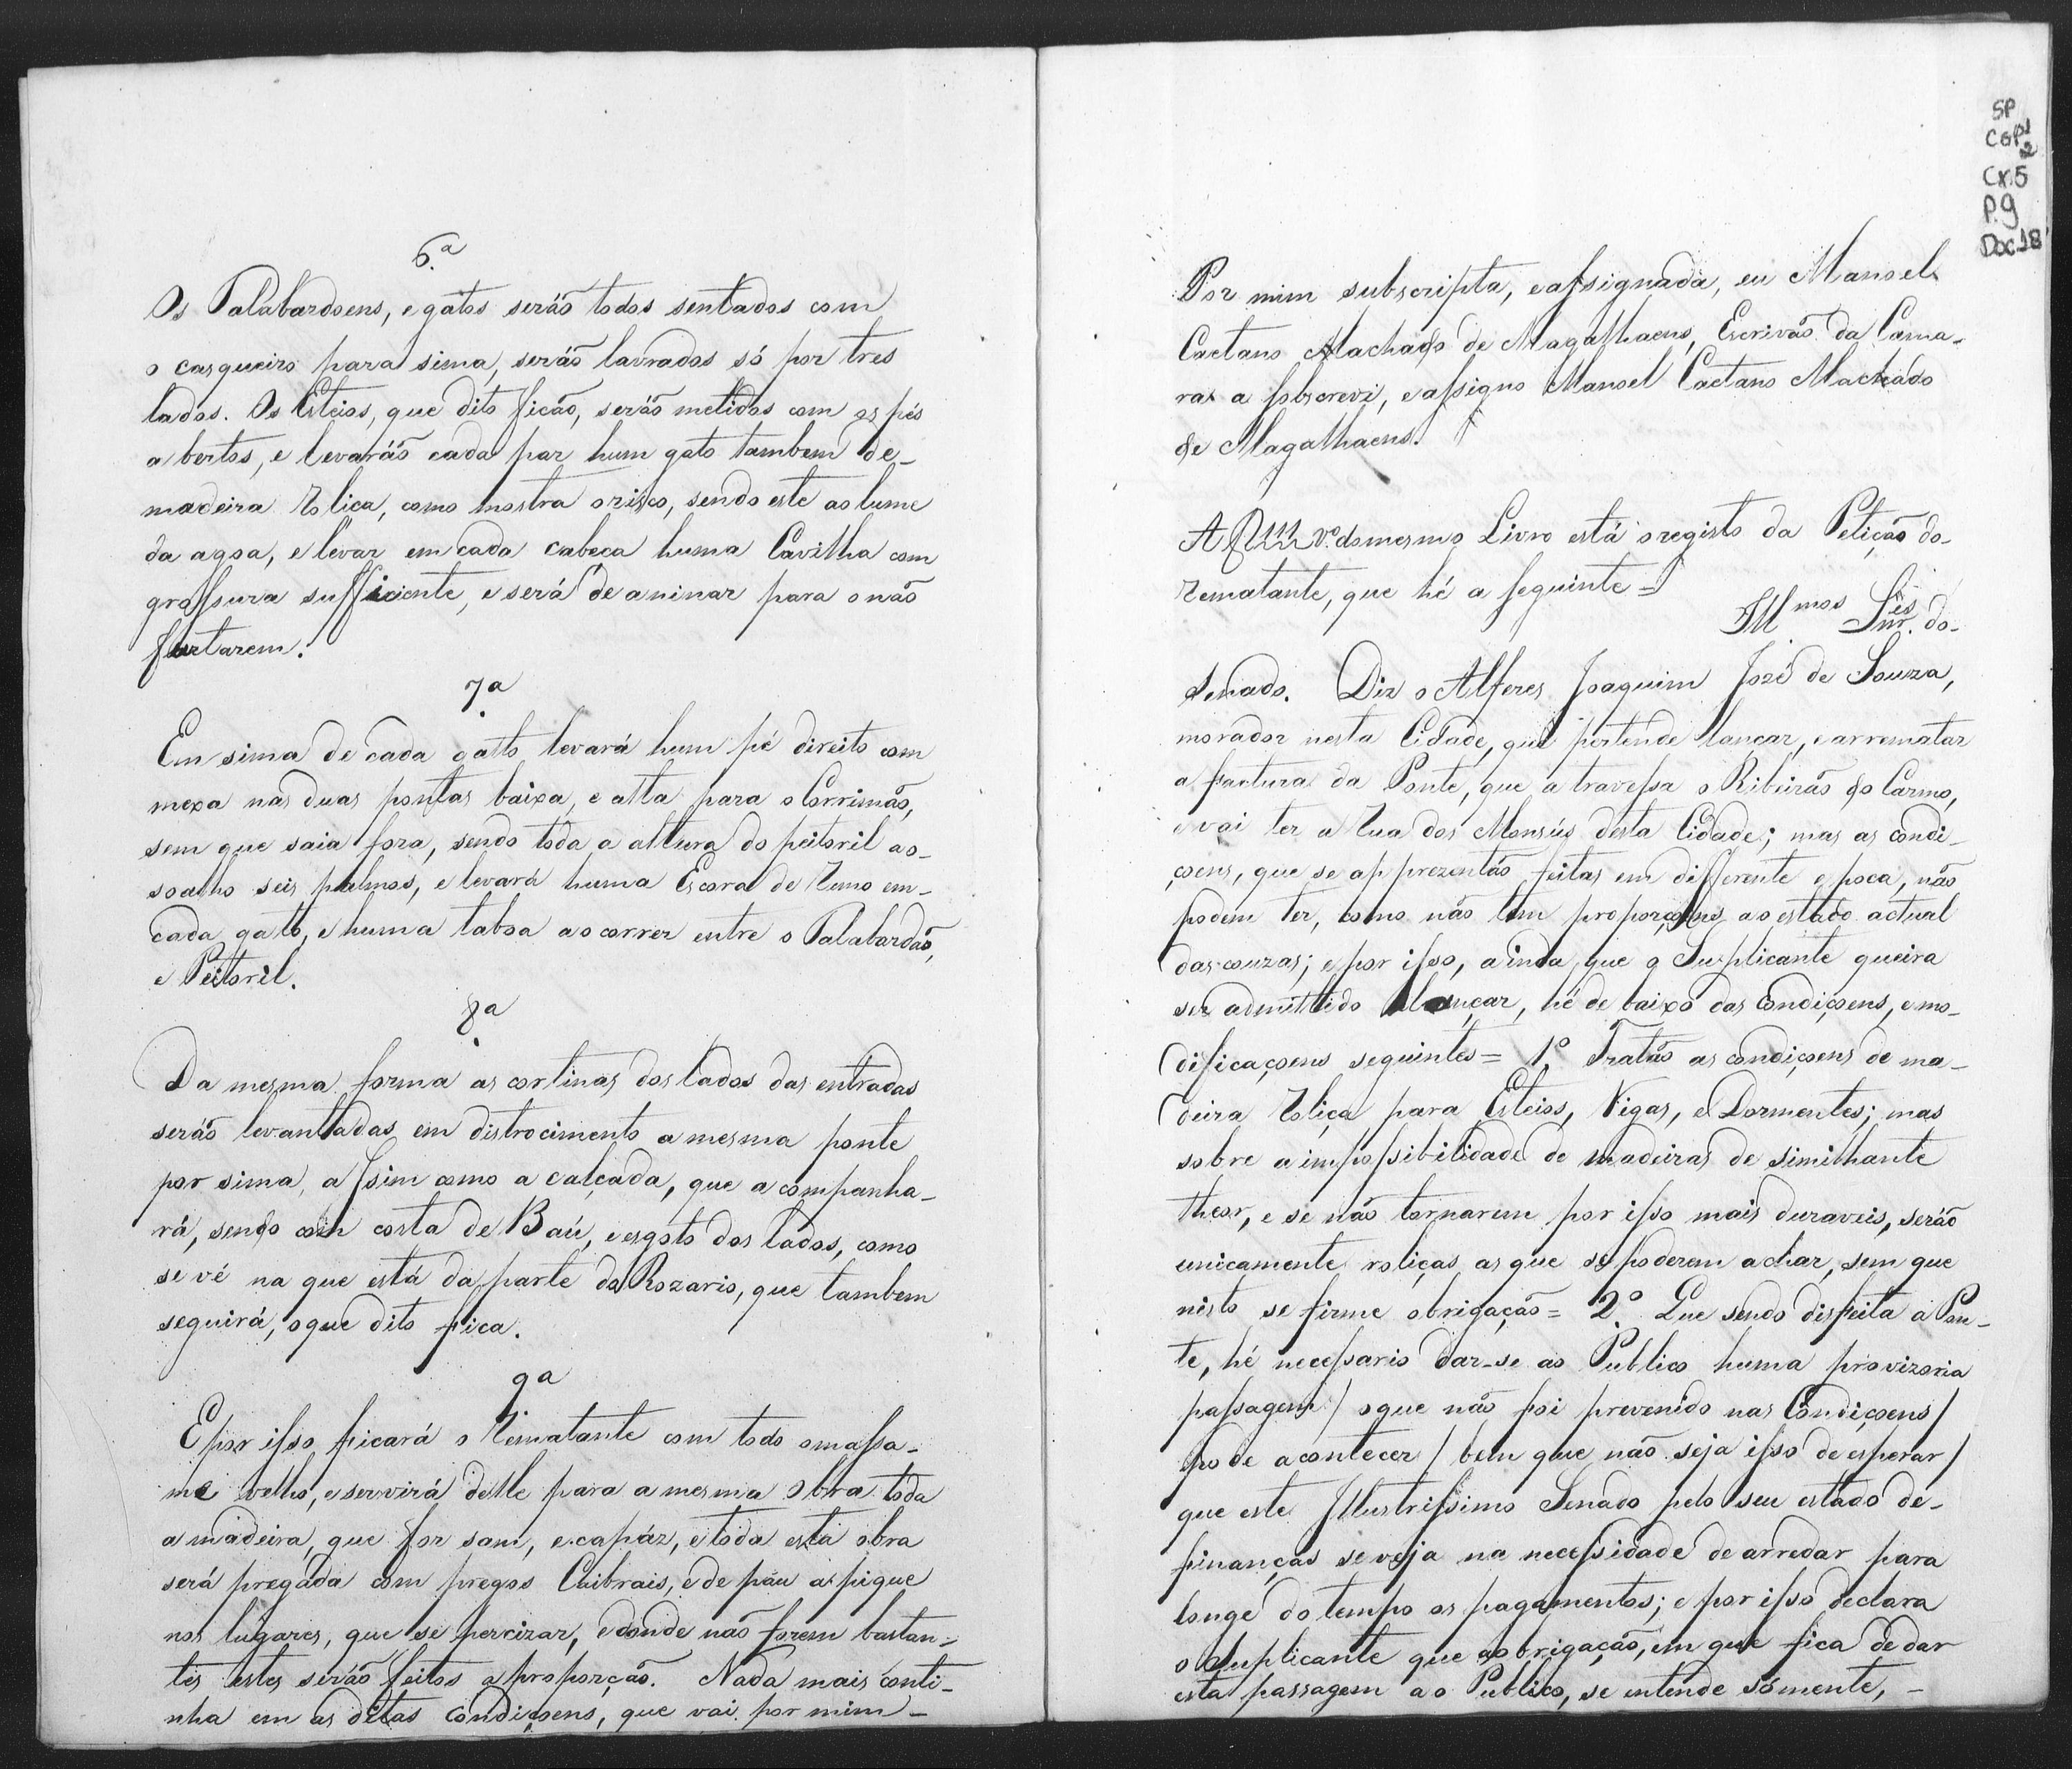 6.ª
Os Palabardoens, e gatos seráõ todos sentados com
o casqueiro para sima, seráõ lavrados só por tres
lados. Os Esteios, que dito ficaõ, seráõ metidos com os pés
abertos, e levaráõ cada par hum gato tambem de-
madeira rolica, como mostra o risco, sendo este ao lume
da agoa, e levar em cada cabeça huma Cavilha com
grossura sufficiente, e será de aninar para o não
furtarem.
7.ª
Em sima de cada gatto levará hum pé direito com
mexa nas duas pontas baixa, e alta para o Corrimaõ,
sem que saia fora, sendo toda a altura do peitoril ao-
soalho seis palmos, e levará huma Escora de Rumo em-
cada gato, e huma taboa ao correr entre o Palabardaõ,
e Peitoril.
8.ª
Da mesma forma as cortinas dos lados das entradas
seráõ levantadas em distrocimento a mesma ponte
por sima, assim como a calçada, que acompanha-
rá, sendo com costa de Baú, e esgoto dos lados, como
se vé na que está da parte do Rozario, que tambem
seguirá, o que dito fica.
9.ª
E por isso ficará o Rematante com todo o massa-
me velho, e servirá delle para a mesma Obra toda
a madeira, que for sam, e capáz, e toda esta obra
será pregada com pregos Caibrais, e de páu a pique
nos lugares, que se percizar, e donde naõ forem bastan-
tes estes seráõ feitos a proporçaõ. Nada mais conti-
nha em as ditas condiçoens, que vai por mim-
SP
CGP1
2
Cx.5
P.9
Doc 18
Por mim subscripta, e assignada, eu Manoel
Caetano Machado de Magalhaens, Escrivaõ da Cama-
ra a sobscrevi, e assigno Manoel Caetano Machado
de Magalhaens.
A f 111 v.º do mesmo Livro está o registo da Petiçaõ do-
Rematante, que hé a seguinte =
Ill.mos Snr.es do-
Senado. Diz o Alferes Joaquim José de Souza,
morador nesta Cidade, que pertende lançar, e arrematar
a factura da Ponte, que atravessa o Ribeiraõ do Carmo,
e vai ter a Rua dos Monsús desta Cidade; mas as condi-
çoens, que se apprezentaõ feitas em differente epoca, naõ
podem ter, como naõ tem proporçoens ao estado actual
das couzas; e por isso, ainda que o Suplicante queira
ser admittido a lançar, hé debaixo das Condiçoens, e mo-
dificaçoens seguintes = 1.º Trataõ as condiçoens de ma-
deira roliça para Esteios, Vigas, e Dormentes; mas
sobre a impossibilidade de madeiras de similhante
theor, e se naõ tornarem por isso mais duraveis, seráõ
unicamente roliças as que se poderem achar, sem que
nisto se firme obrigaçaõ = 2.º Que sendo disfeita a Pon-
te, hé necessario dar-se ao Publico huma provizoria
passagem / o que naõ foi prevenido nas Condiçoens /
pode acontecer / bem que naõ seja isso de esperar /
que este Illustrissimo Senado pelo seu estado de-
finanças se veja na necessidade de arredar para
longe do tempo os pagamentos; e por isso declara
o Suplicante que a obrigaçaõ, em que fica de dar
esta passagem ao Publico, se entende sómente, -